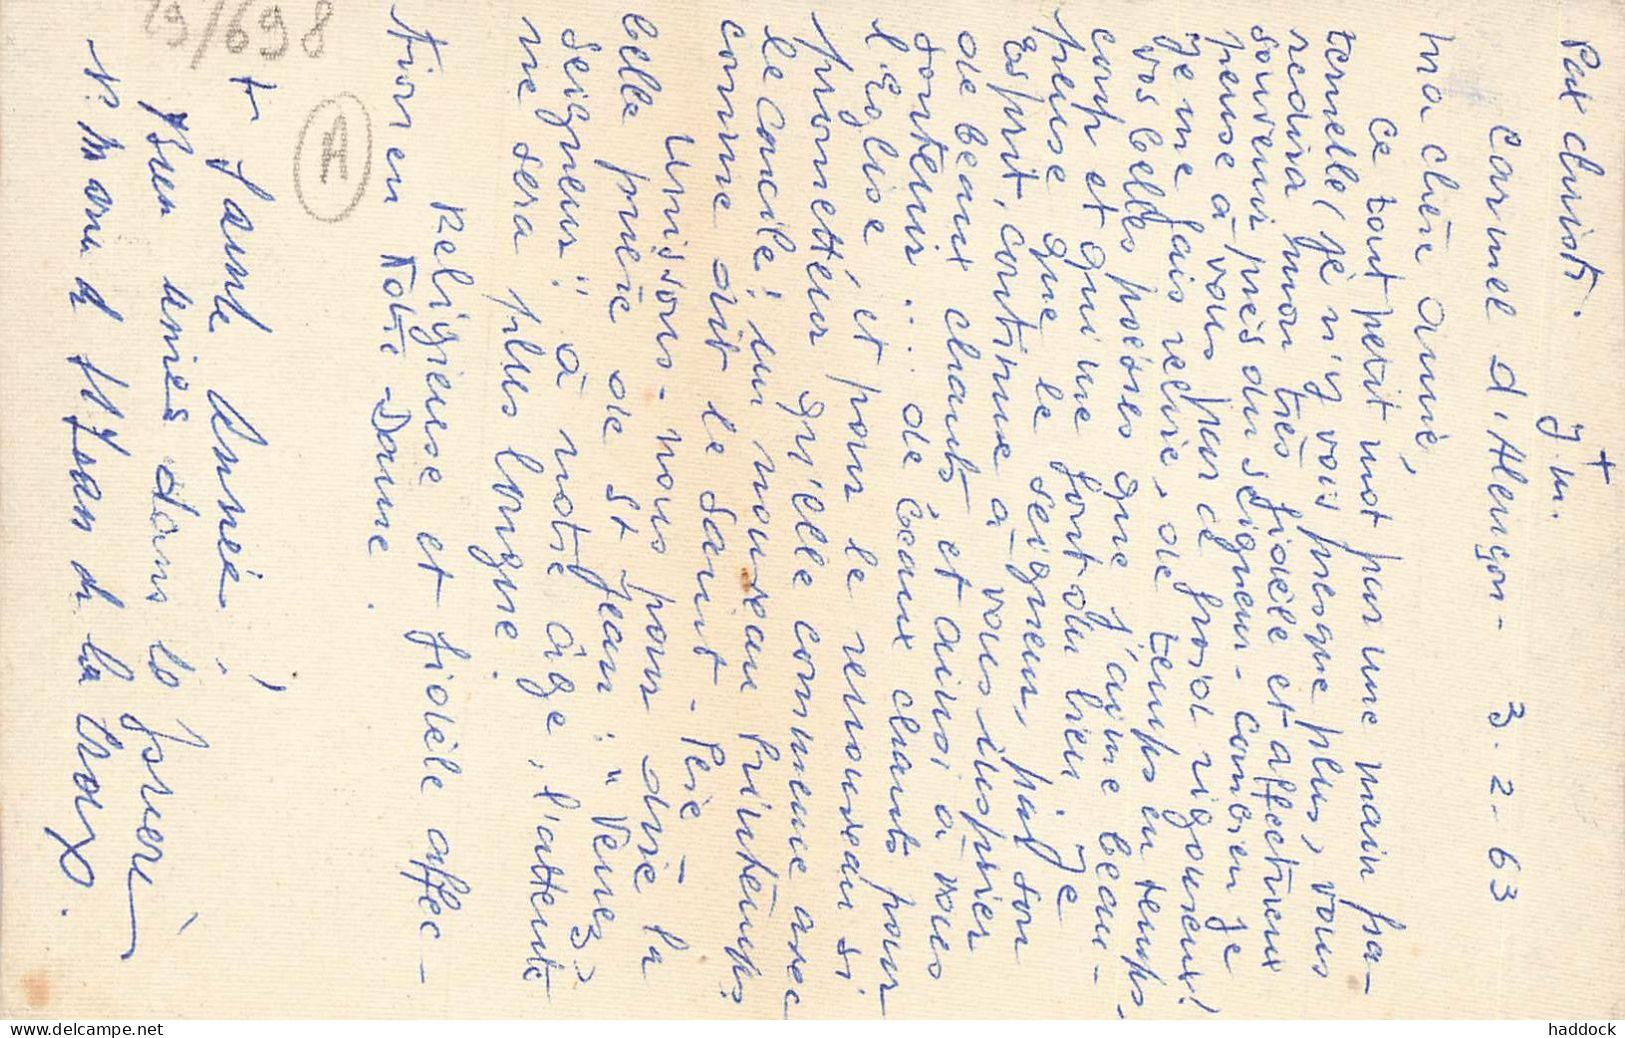 Pax christi.
+
J. M.
Carmel d'Alençon - 3-2-63
Ma chère amie,
Ce tout petit mot par une main pa-
ternelle (je n'y vois presque plus), vous
redira mon très fidèle et affectueux
souvenir près du Seigneur - combien je
pense à vous par ce froid rigoureux!
Je me fais relire, de temps en temps,
vos belles poésies que j'aime beau-
coup et qui me font du bien. Je
pense que le Seigneur, par son
Esprit, continue à vous inspirer
de beaux chants, et ainsi à vous
soutenir ... de beaux chants pour
l'Eglise, et pour le renouveau si
prometteur qu'elle commence avec
le Concile! un nouveau Printemps.
comme dit le Saint-Père -
Unissons-nous pour dire la
belle prière de St Jean : "Venez,
Seigneur" à notre âge, l'attente
ne sera plus longue.
Religieuse et fidèle affec-
tion en Notre-Dame.
+ Sainte Année !
Bien unies dans la prière
Sr. Marie de St Jean de la Croix.
29/698
A
www.delcampe.net
haddock